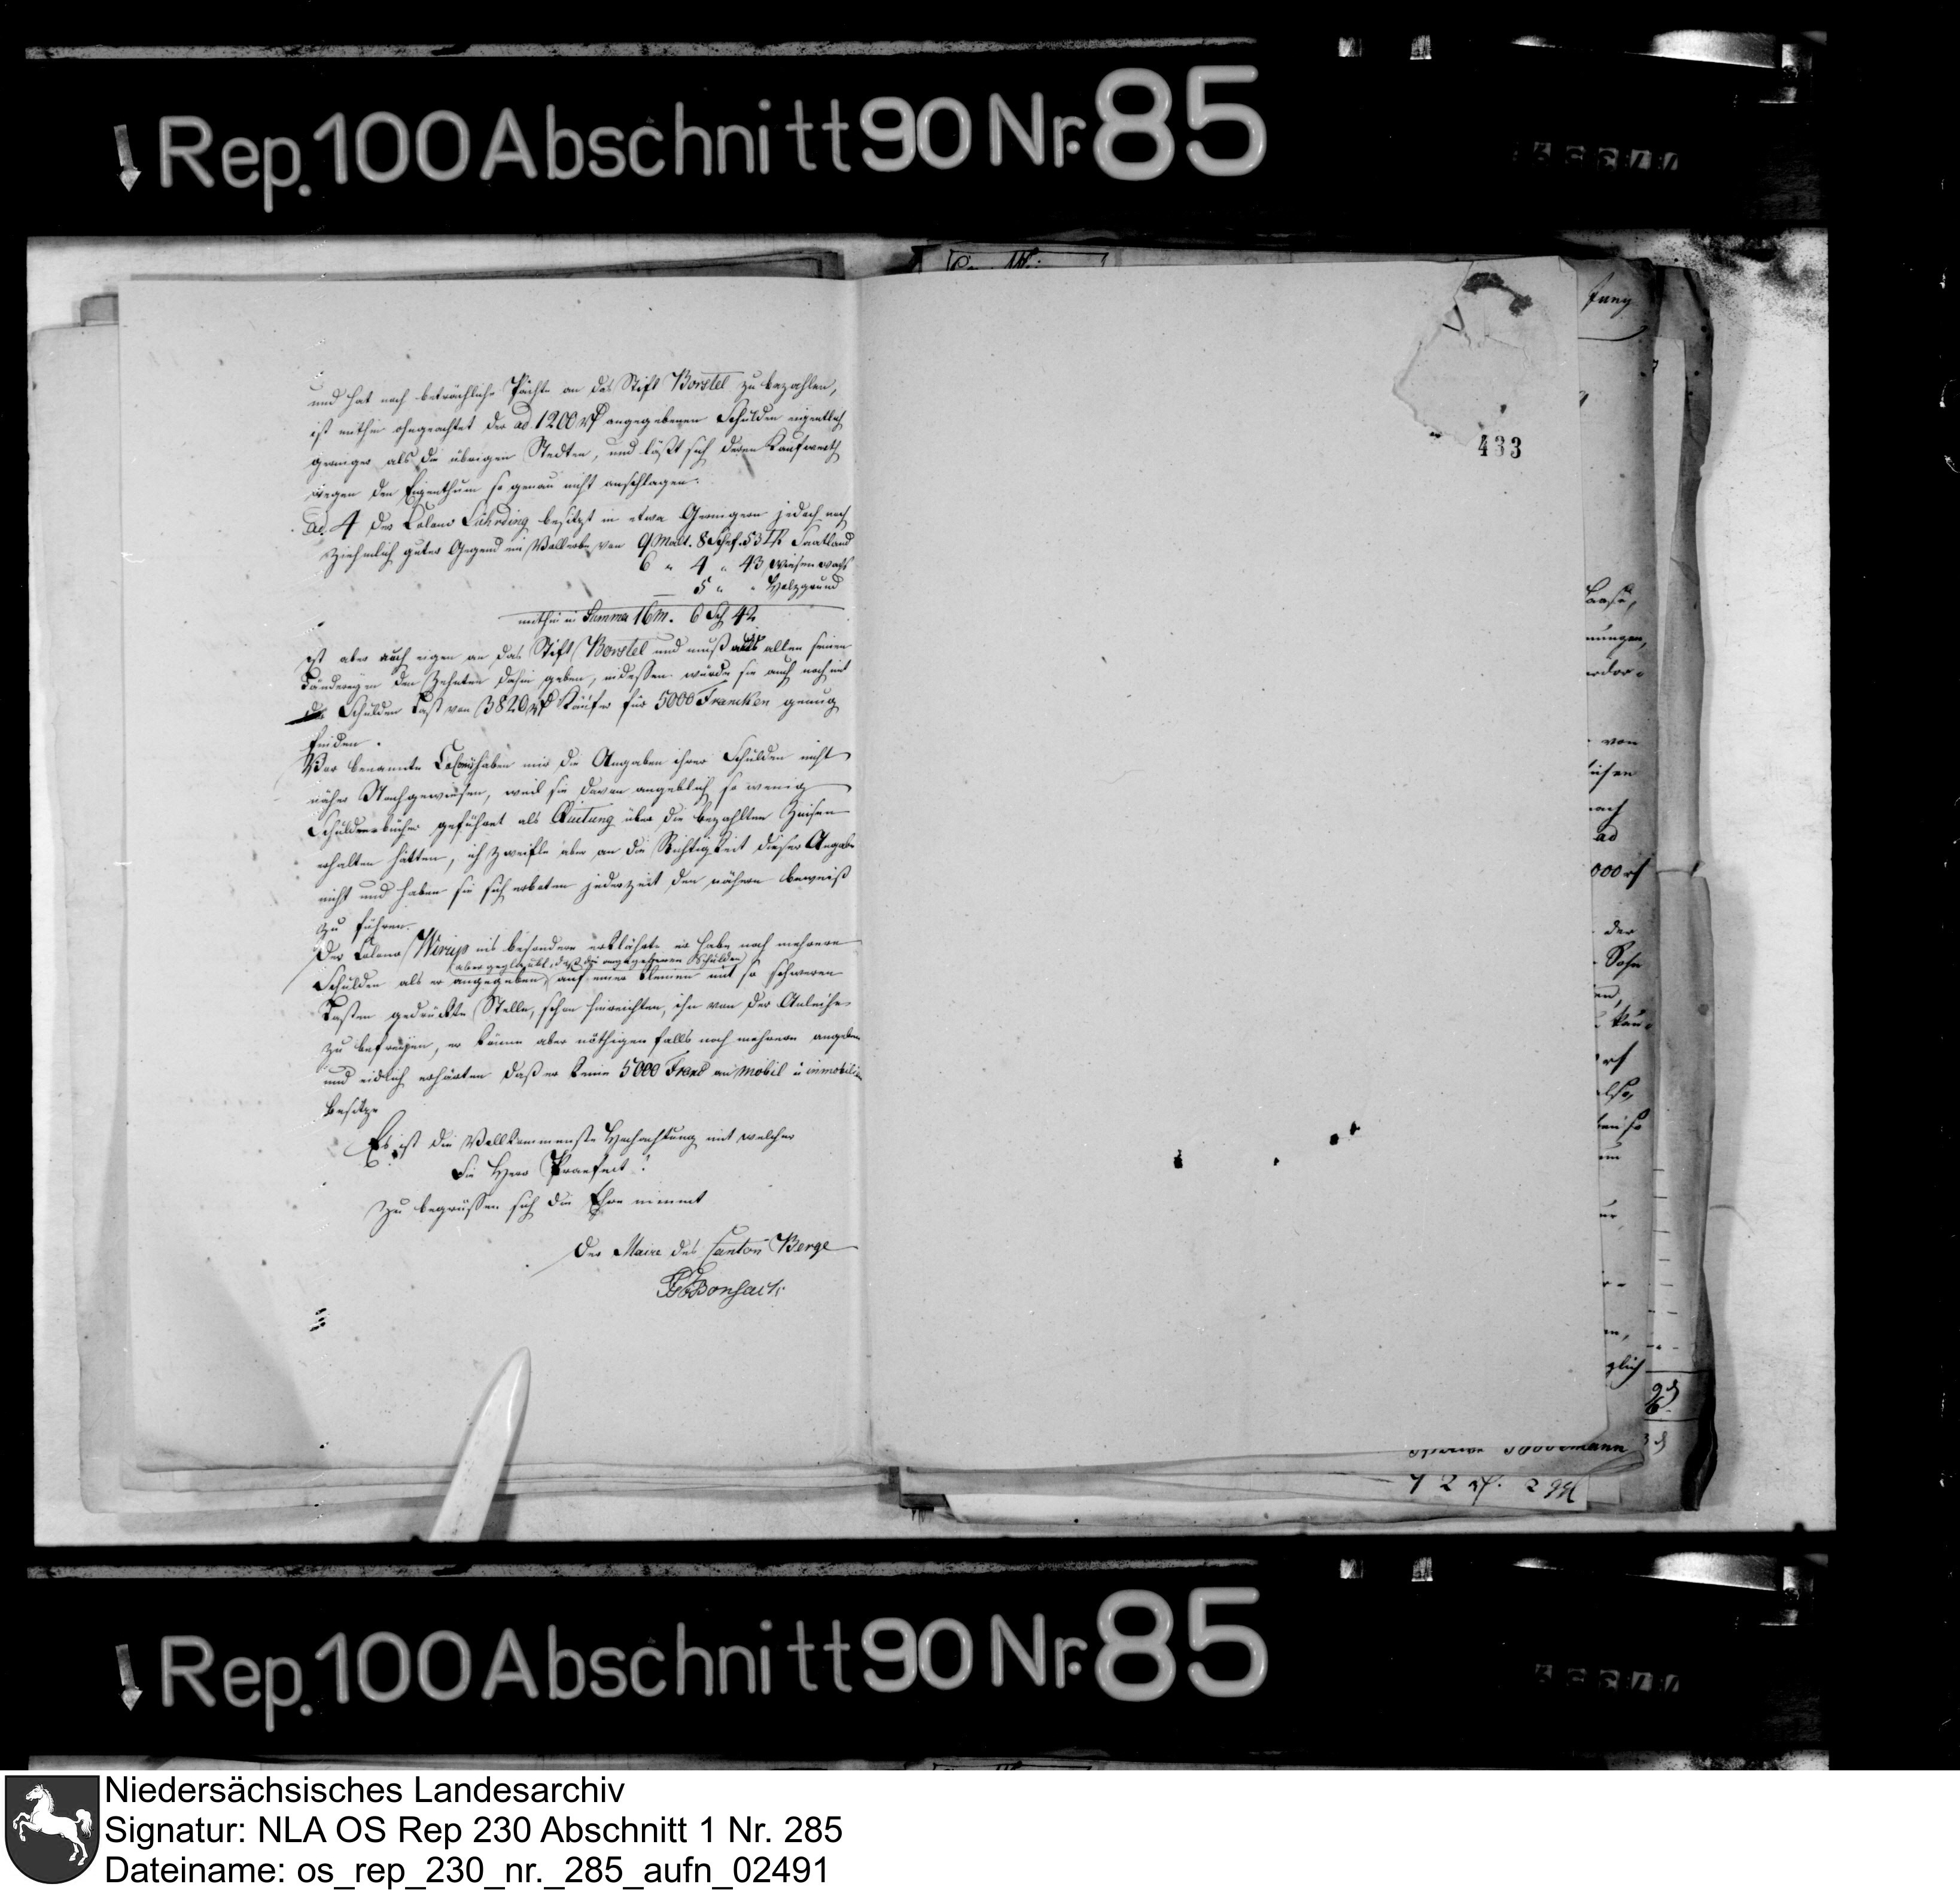 Rep. 100 Abschnitt 90 Nr. 85
und hat noch beträchliche Pächte an das Stift Borstel zu bezahlen,
ist mithin ohngeachtet der ad 1200 rt angegebenen Schulden eigentlich
geringer als die übrigen Stedten, und läßt sich deren Kaufwerth
wegen den Eigenthum so genau nicht anschlagen.
Ad. 4 Der Colono Lührding besitzt in etwa Geringern jedoch noch
Ziehmlich guter Gegend ein Vollerbe von 9 Malt. 8 Schef. 53 Saatland
6 " 4 " 43 Wiesenwachs
5 " " Holzgrund
mithin in Summa 16 M. 6 Sch 42
ist aber auch eigen an das Stift Borstel und muß aus allen seinen
Ländereyen den Zehnten dahin geben, indessen würde sie auch noch mit
Schulden Last von 3820 rt Käufer für 5000 Francken genug
finden.
Vor benannte Coloni haben mir die Angaben ihrer Schulden nicht
näher Nachgewiesen, weil sie davon angeblich so wenig
Schuldenbücher geführet als Quitung über die bezahlten Zinsen
erhalten hätten, ich Zweifle aber an die Richtigkeit dieser Angabe
nicht und haben sie sich erboten jederzeit den nähern beweiß
zu führen.
Der Colono ins besondere erklährte er habe noch mehrere
aber geglaubt, daß die angegebenen Schulden
Schulden als er angegeben auf einer kleinen mit so schweren
Lasten gedrückte Stelle, schon hinreichten, ihn von der Anleihe
zu befreyen, er könne aber nöthigen falls noch mehrere angeben
und eidlich erhärten daß er keine 5000 Franc an mobil u immobilien
besitze
Es ist die Vollkommenste Hochachtung mit welcher
Sie Herr Praefect!
Zu begrüssen sich die Ehre nimmt
Der Maire des Canton Berge
433
Juny
von
nach
ad
000 rt
der
Sohn
rt
also,
glich
2 rt. 2 ggl
Rep. 100 Abschnitt 90 Nr. 85
Niedersächsisches Landesarchiv
Signatur: NLA OS Rep 230 Abschnitt 1 Nr. 285
Dateiname: os_rep_230_nr._285_aufn_02491